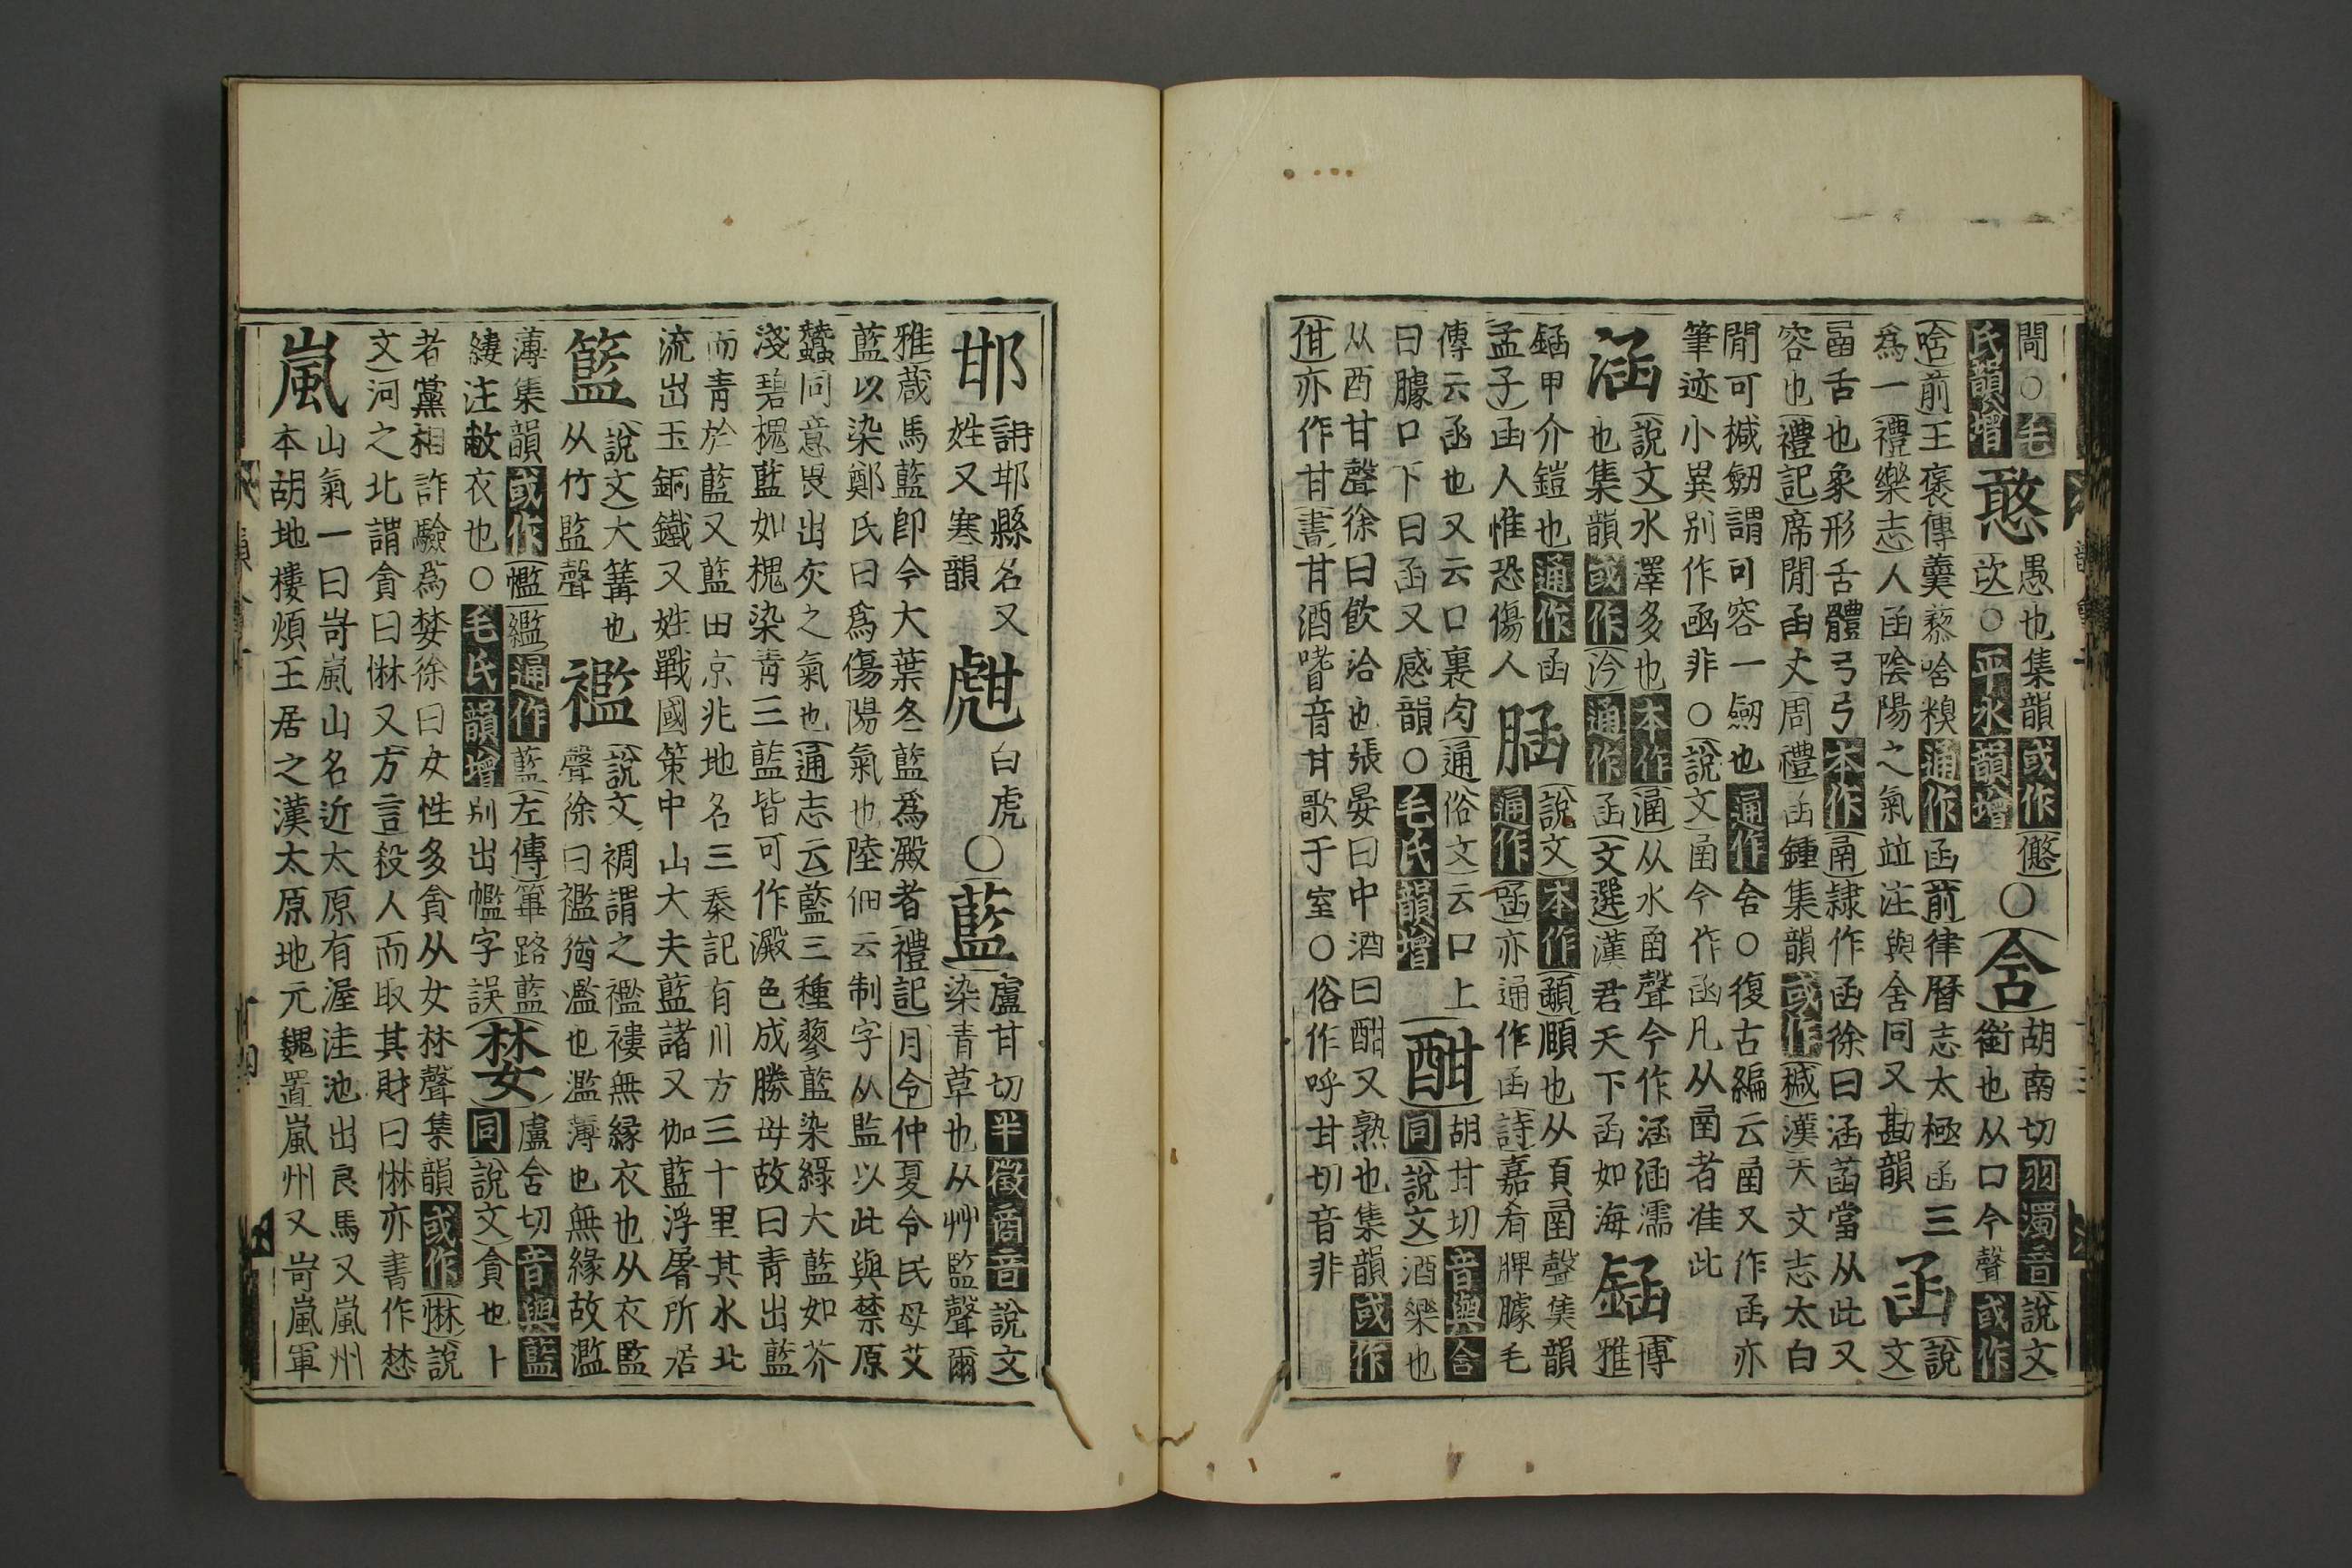 閜○毛
氏韻增
憨
愚也集韻或作㦥
㰹○平水韻增
○含
胡南切羽濁音說文
銜也从口今聲或作
唅前王褒傳羹藜唅糗通作函前律曆志太極函三
為一禮樂志人函陰陽之氣竝注與含同又勘韻
函
說
文
㽉舌也象形舌體𢎘𢎘本作㽉隷作函徐曰涵菡當从此又
容也禮記席閒函丈周禮函鍾集韻或作椷漢天文志太白
閒可椷劒謂可容一劒也通作含○復古編云㽉又作函亦
筆迹小異别作凾非○說文㽉今作函凡从㽉者准此
涵
說文水澤多也本作㴠从水㽉聲今作涵涵濡
也集韻或作汵通作函文選漢君天下函如海
錎
博
雅
錎甲介鎧也通作函
孟子函人惟恐傷人
脜
說文本作顄頤也从頁㽉聲集韻
通作函亦通作函詩嘉肴脾臄毛
傳云函也又云口裏肉通俗文云口上
曰臄口下曰函又感韻○毛氏韻增
酣
胡甘切音與含
同說文酒樂也
从酉甘聲徐曰飲洽也張晏曰中酒曰酣又熟也集韻或作
佄亦作甘書甘酒嗜音甘歌于室○俗作呼甘切音非
邯
邯鄲縣名又
姓又寒韻
甝
白虎
○藍
盧甘切半徵商音說文
染青草也从艸監聲爾
雅葴馬藍卽今大葉冬藍爲澱者禮記月令仲夏令民毋艾
藍以染鄭氏曰爲傷陽氣也陸佃云制字从監以此與禁原
蠶同意畏出灰之氣也通志云藍三種蓼藍染綠大藍如芥
淺碧槐藍如槐染青三藍皆可作澱色成勝母故曰青出藍
而青於藍又藍田京兆地名三秦記有川方三十里其水北
流出玉銅鐵又姓戰國策中山大夫藍諸又伽藍浮屠所居
籃
說文大篝也
从竹監聲
襤
說文裯謂之襤褸無緣衣也从衣監
聲徐曰襤猶濫也濫薄也無緣故濫
薄集韻或作㡫繿通作藍左傳篳路藍
縷注敝衣也○毛氏韻增别出㡫字誤
婪
盧含切音與藍
同說文貪也卜
者黨相詐驗爲婪徐曰女性多貪从女林聲集韻或作惏說
文河之北謂貪曰惏又方言殺人而取其財曰惏亦書作惏
嵐
山氣一曰岢嵐山名近太原有渥洼池出良馬又嵐州
本胡地樓煩王居之漢太原地元魏置嵐州又岢嵐軍